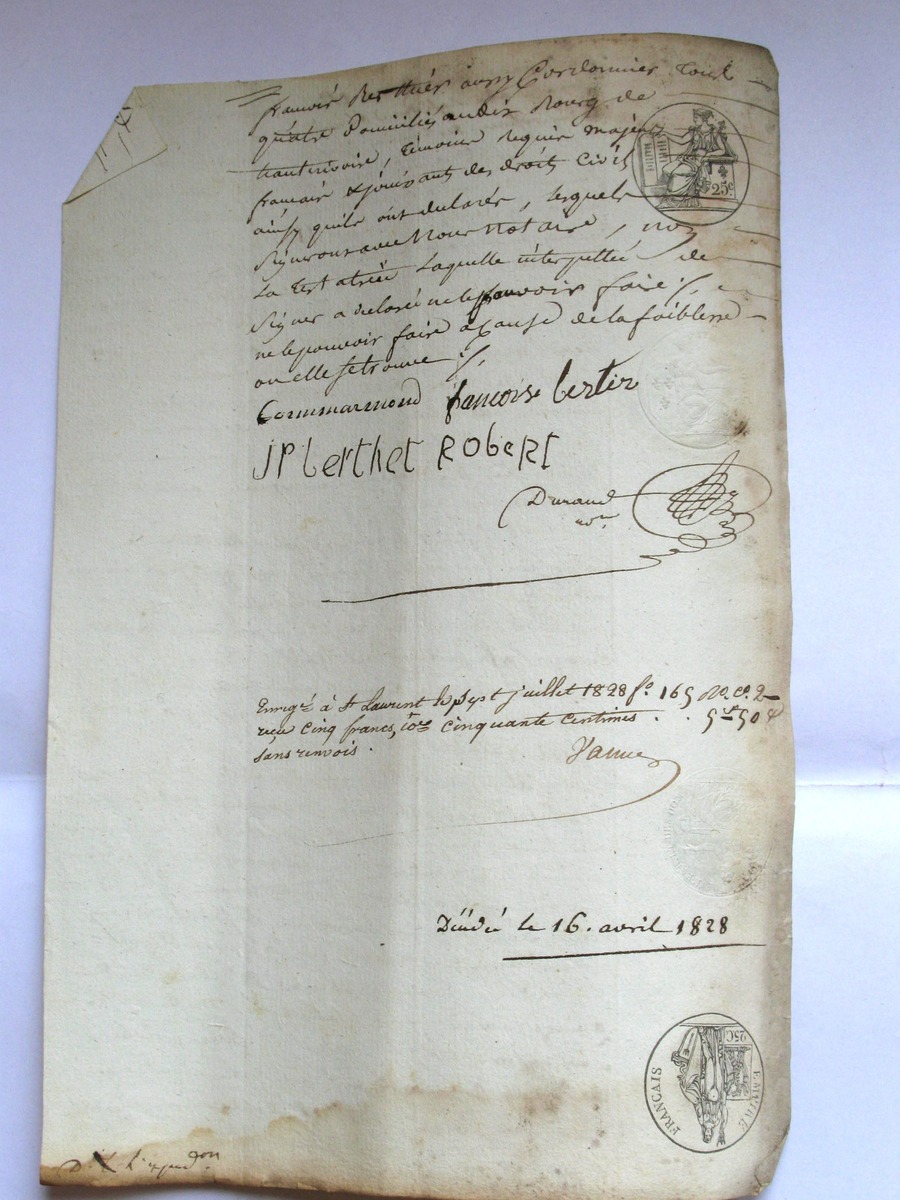 françois Berthier aussy Cordonnier tous
quatre Domiciliés audit Bourg de
hauterivoire, témoins requis majeurs
français & jouissants de droits Civils
ainsy quils ont declarés, lesquels
signeront avec Nous Notaire, non
La Testatrice Laquelle interpellée de
signer a declaré ne le pouvoir faire ·/.
ne le pouvoir faire a Cause de la foiblesse
ou elle se trouve ·/.
Commarmond francois bertier
JP berthet RObeRT
Durand
nore
25c.
Enregé à St Laurent le sept juillet 1828 fo. 165 Ro. co. 2
reçu cinq francs, 10e cinquante centimes . . 5f 50c
sans renvois.
Décédée le 16. avril 1828
EMPIRE FRANÇAIS
25C